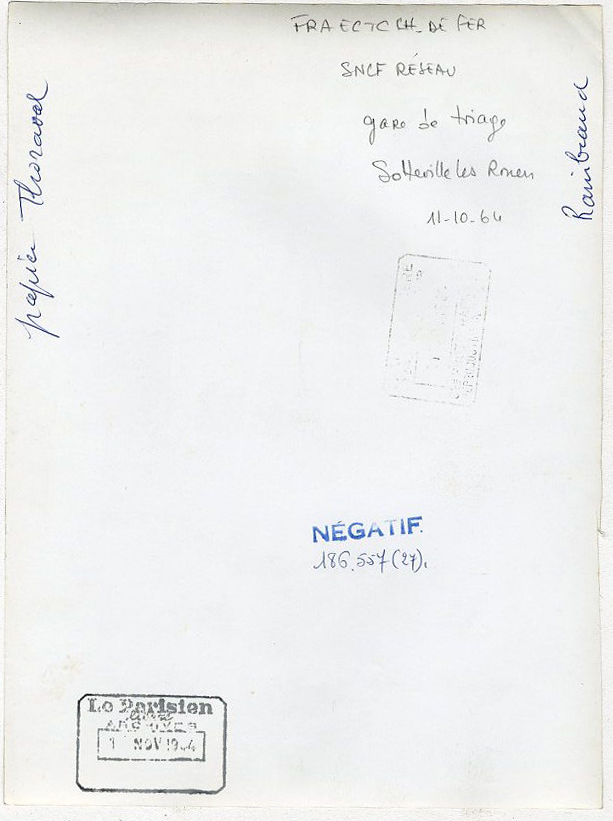 FRA ECTC CH. DE FER
SNCF RÉSEAU
gare de triage
Sotteville les Rouen
11-10-64
papier Thoraval
Raimbeaud
NÉGATIF.
186.557(27).
Le Parisien
libéré
ARCHIVES
NOV 19 4